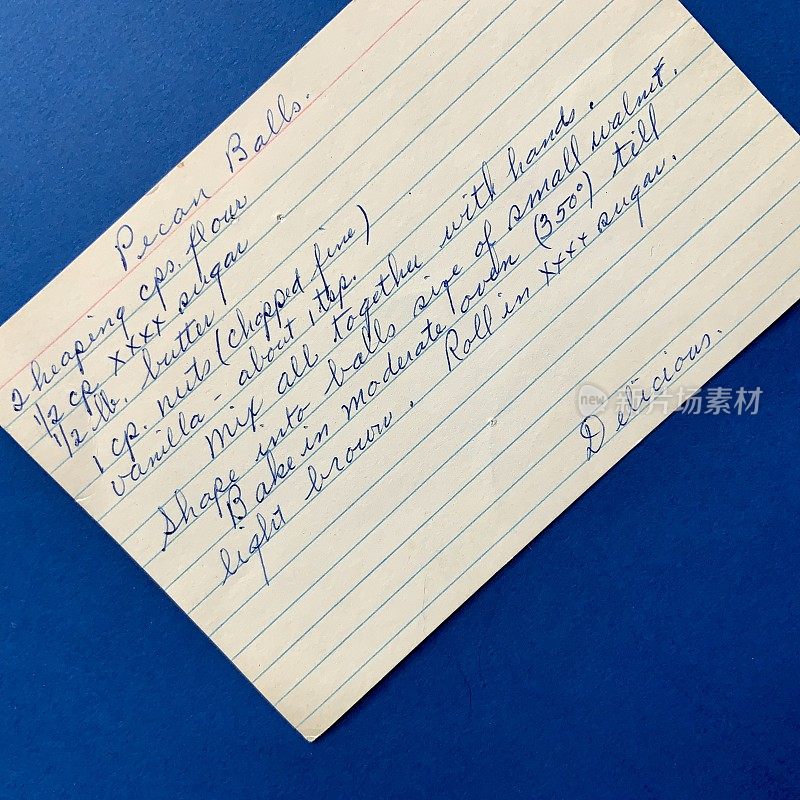 Pecan Balls.
2 heaping cps. flour
1/2 cp. xxxx sugar
1/2 lb. butter
1 cp. nuts (chopped fine)
vanilla - about 1 tsp.
Mix all together with hands.
Shape into balls size of small walnut.
Bake in moderate oven (350°) till
light brown. Roll in xxxx sugar.
Delicious.
new 印象设计素材